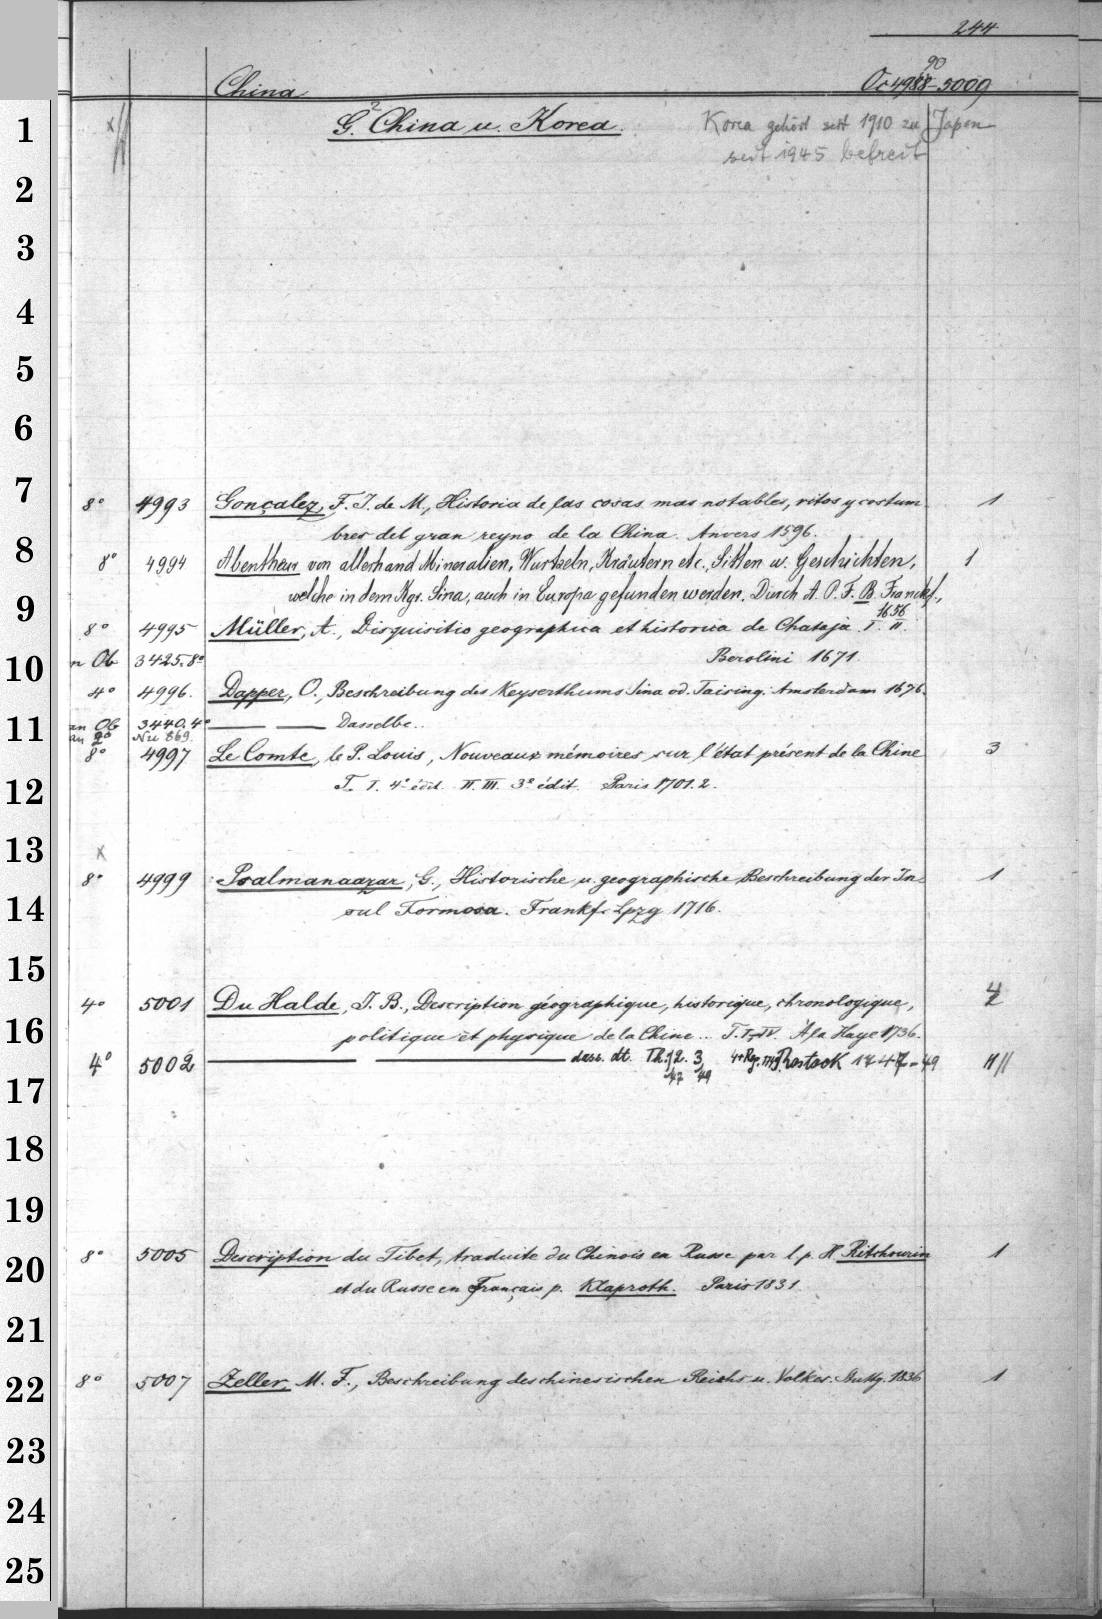 244
90
China Oc 4988-5009
1
x G.² China u. Korea. Korea gehört seit 1910 zu Japan
seit 1945 befreit
2
3
4
5
6
7
8° 4993 Gonçalez, F. J. de M., Historia de las cosas mas notables, ritos y costum
bres del gran reyno de la China. Anvers 1596. 1
8
8° 4994 Abentheur von allerhand Mineralien, Wurtzeln, Kräutern etc., Sitten u. Geschichten, 1
welche in dem Kgr. Sina, auch in Europa gefunden werden. Durch A. P. F. B. Franckf.,
1656
9
8° 4995 Müller, A., Disquisitio geographica et historica de Chataja I. II.
Berolini 1671.
10
an Ob 3425.8°
4° 4996. Dapper, O., Beschreibung des Keyserthums Sina od. Taising. Amsterdam 1676.
11
an Ob 3440.4° Dasselbe.
an 2° Nu 869.
8° 4997 Le Comte, le P. Louis, Nouveaux mémoires sur l'état présent de la Chine 3
12
T. I. 4e édit. II. III. 3e édit. Paris 1701.2.
13
x
8° 4999 Psalmanaazar, G., Historische u. geographische Beschreibung der In- 1
14
sul Formosa. Frankf. Lpzg 1716.
15
4° 5001 Du Halde, J. B., Description géographique, historique, chronologique, 4
16
politique et physique de la Chine... T. I-IV. À la Haye 1736.
4° 5002 dass. dt. Th. 1 2. 3 4+Reg. 1749. Rostock 1747-49
47 49
17
18
19
20
8° 5005 Description du Tibet, traduite du Chinois en Russe par l. p. H. Bitchourin 1
et du Russe en Français p. Klaproth. Paris 1831.
21
22
8° 5007 Zeller, M. F., Beschreibung des chinesischen Reichs u. Volkes. Stuttg. 1836 1
23
24
25